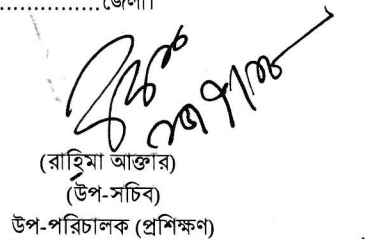 ................জেলা।
(রাহিমা আক্তার)
(উপ-সচিব)
উপ-পরিচালক (প্রশিক্ষণ)